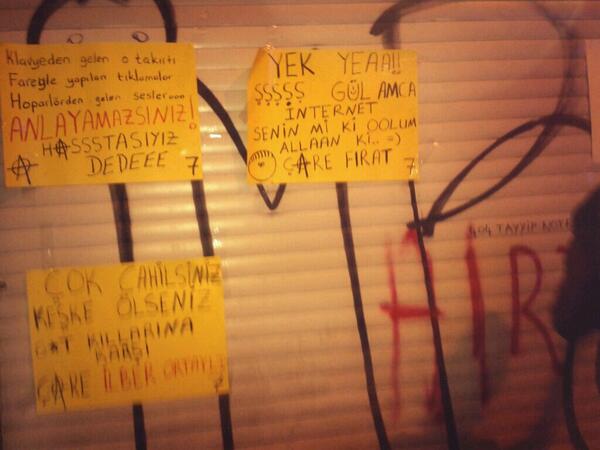 Klavyeden gelen o takırtı
Fareyle yapılan tıklamalar
Hoparlörden gelen sesleroooo
ANLAYAMAZSINIZ!
HASSSTASIYIZ
DEDEEE 7
YEK YEAA!!
ŞŞŞŞŞ GÜL AMCA
İNTERNET
SENİN Mİ Kİ OOLUM
ALLAAN Kİ.. =)
ÇARE FIRAT 7
ÇOK CAHİLSİNİZ
KEŞKE ÖLSENİZ
G*T KILLARINA
KARŞI
ÇARE İLBER ORTAYLI
404 TAYYİP NOT
HIR